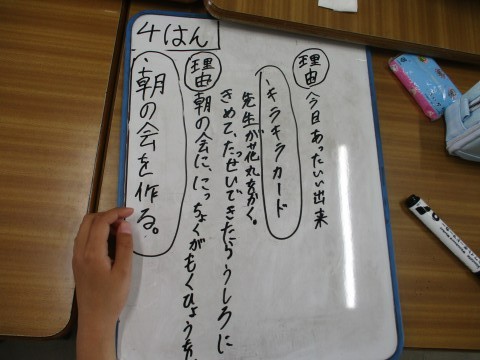 4はん
・朝の会を作る。
理由 朝の会に、にっちょくがもくひょうを、
きめて、たっせいできたらうしろに
先生が花丸をかく。
・キラキラカード
理由 今日あったいい出来